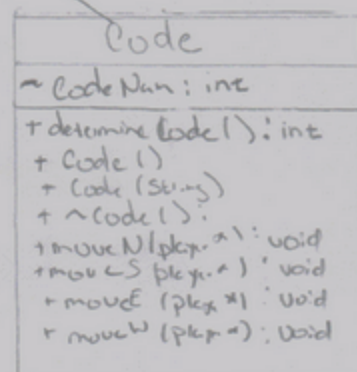 Code
~ CodeNum : int
+ determineCode() : int
+ Code()
+ Code(String)
+ ~Code() :
+ moveN( *) : void
+ moveS *) : void
+ moveE ( *) : void
+ moveW ( *) : void